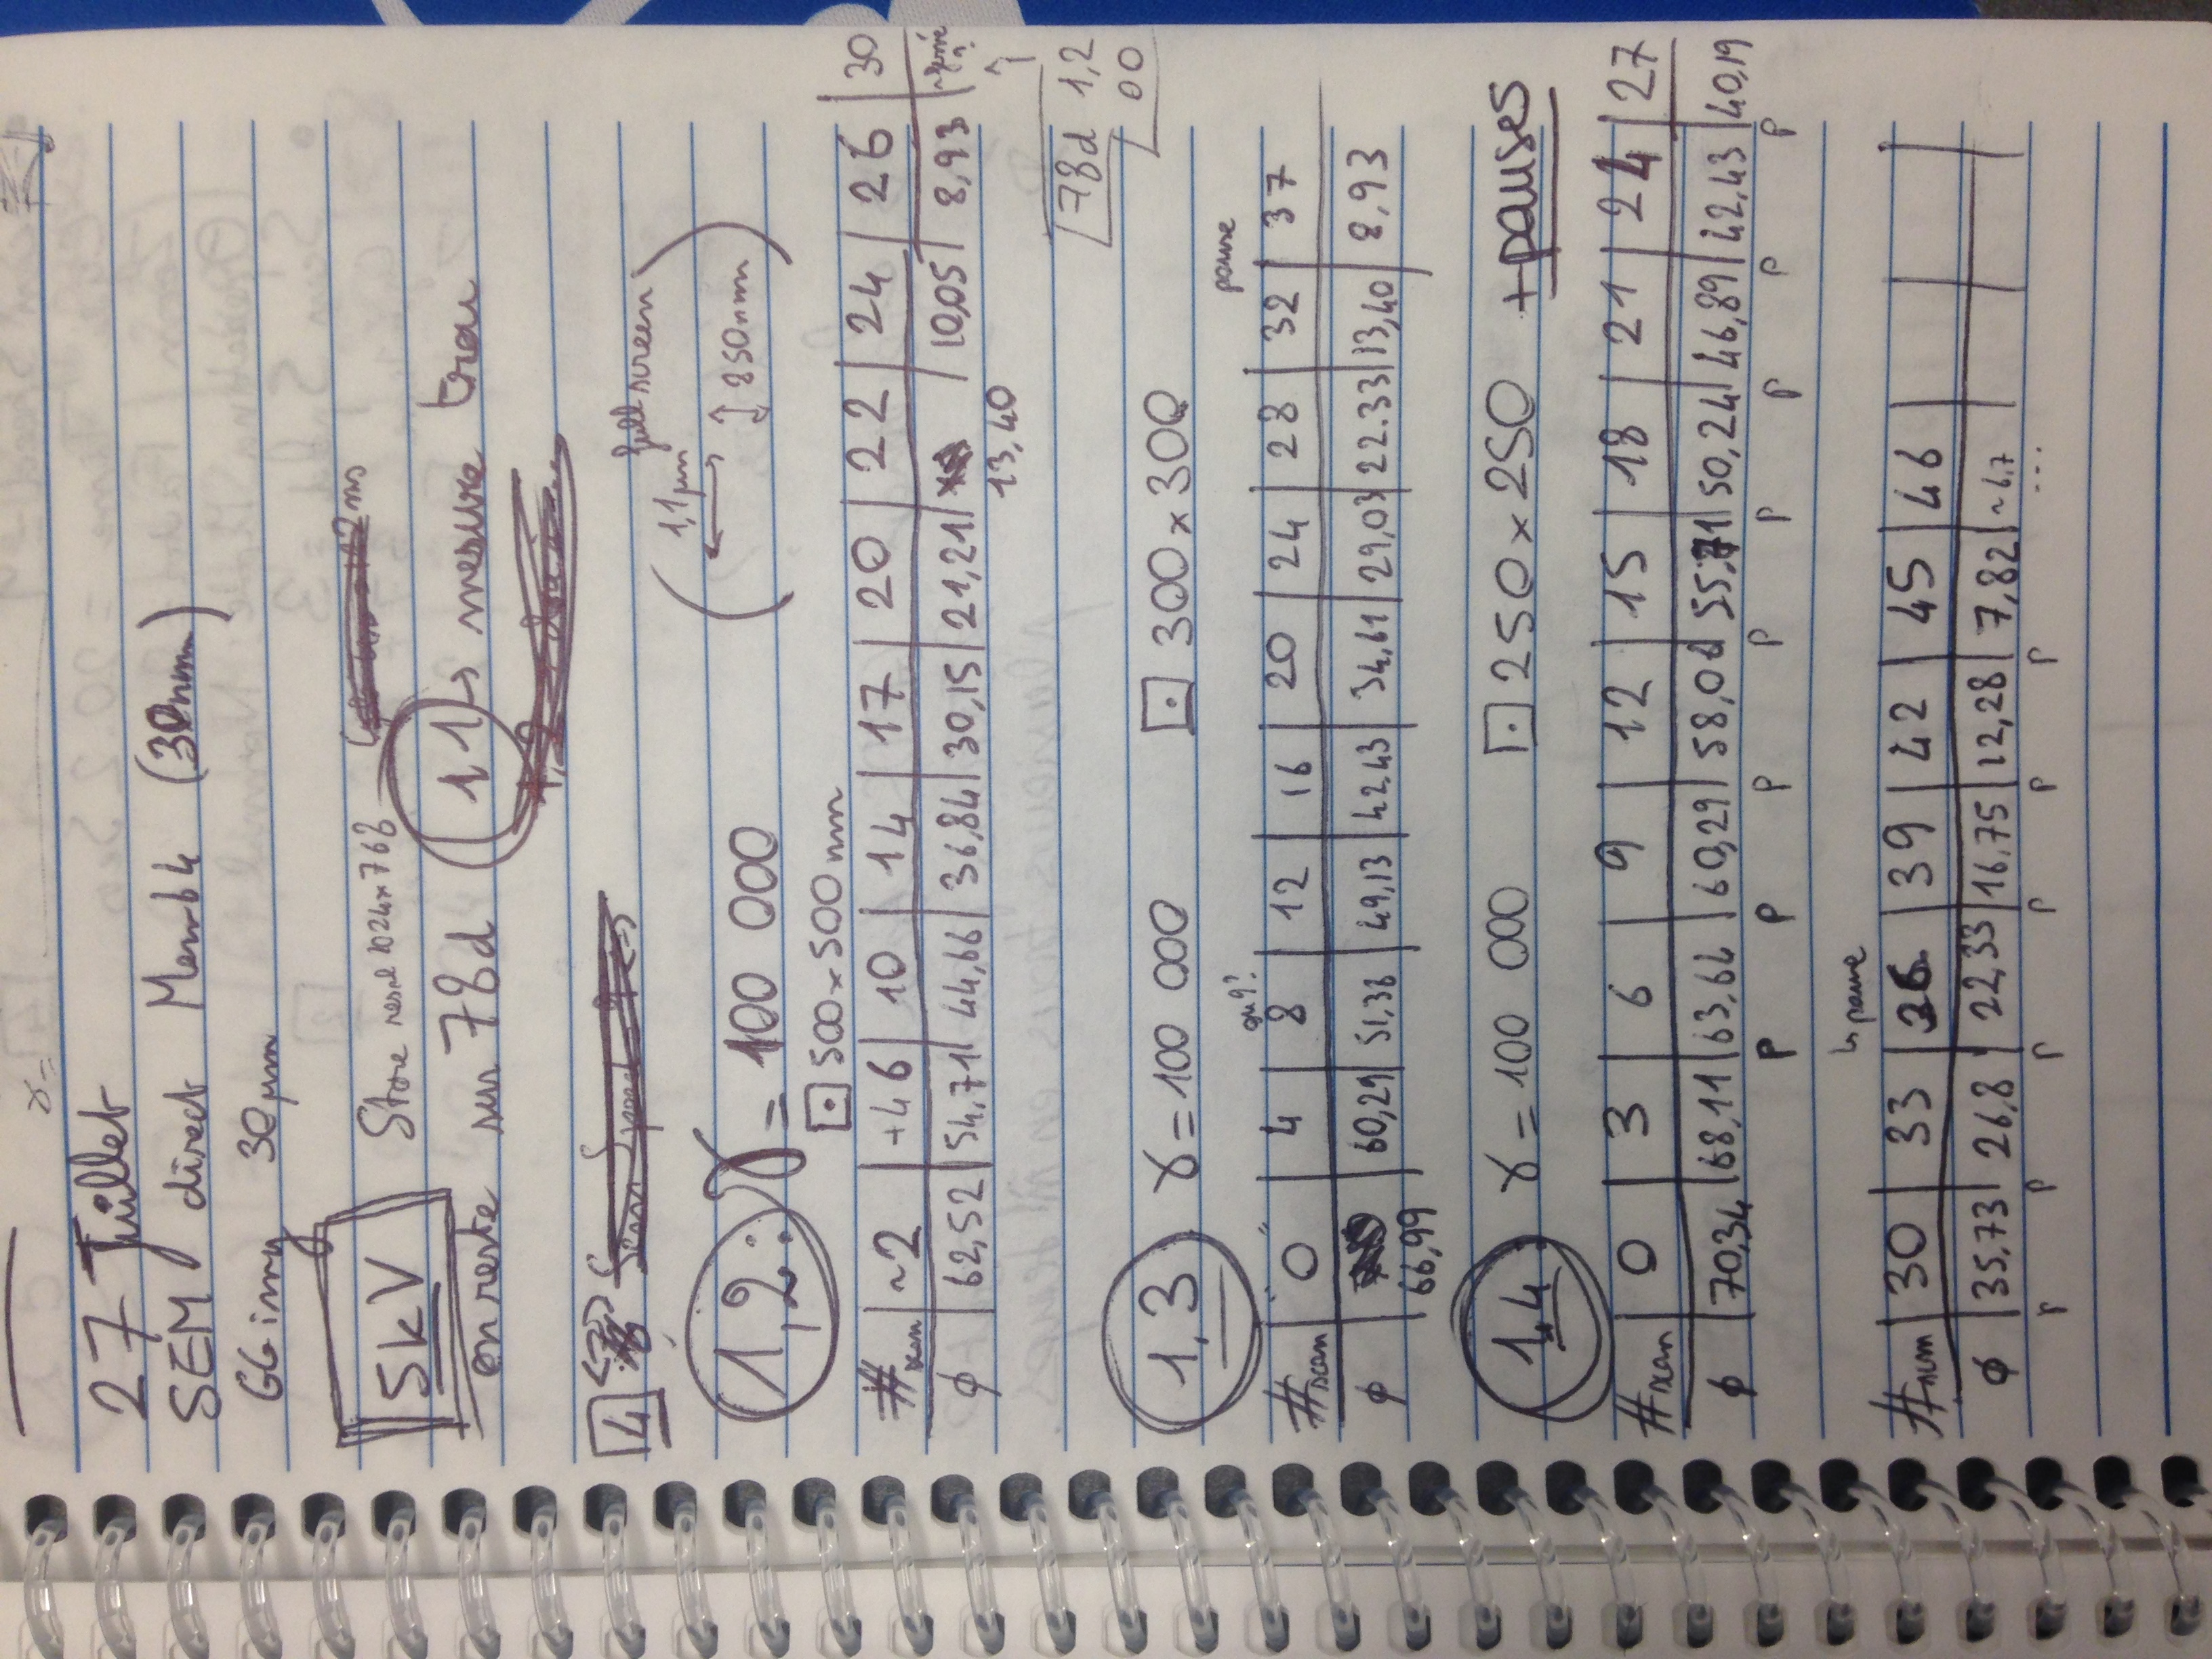 γ=
27 Juillet
SEM direct Memb4 (30nm)
30µm
5kV
Store resol 1024x768
on reste sur 78d 11 → mesure trou
4 <7>
1,2: γ = 100 000
(full screen 1,1µm ↔ ↕ 850nm)
⊡ 500 x 500 nm
#scan | ~2 | +4 6 | 10 | 14 | 17 | 20 | 22 | 24 | 26 | 30
ϕ | 62,52 | 54,71 | 44,66 | 36,84 | 30,15 | 21,21 | 13,40 | 10,05 | 8,93 | ~fermé ?
↑
78d 1,2
00
1,3 γ = 100 000 ⊡ 300 x 300
ou 9? pause
#scan | "0" | 4 | 8 | 12 | 16 | 20 | 24 | 28 | 32 | 37
ϕ | 66,99 | 60,29 | 51,36 | 49,13 | 42.43 | 34,61 | 29,03 | 22.33 | 13,40 | 8,93
1,4 γ = 100 000 ⊡ 250 x 250 + pauses
#scan | 0 | 3 | 6 | 9 | 12 | 15 | 18 | 21 | 24 | 27
ϕ | 70,34 | 68,11 | 63,64 | 60,29 | 58,06 | 55,71 | 50,24 | 46,89 | 42,43 | 40,19
P P P P P P P P
↳ pause
#scan | 30 | 33 | 36 | 39 | 42 | 45 | 46
ϕ | 35,73 | 26,8 | 22,33 | 16,75 | 12,28 | 7,82 | ~6,7
P P P P P P ...